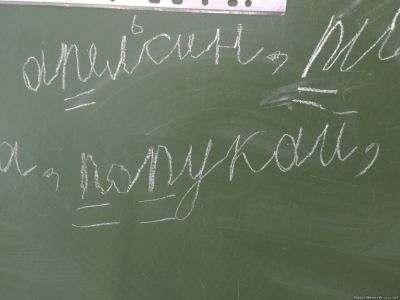 апельсин, ри
а, попукай,